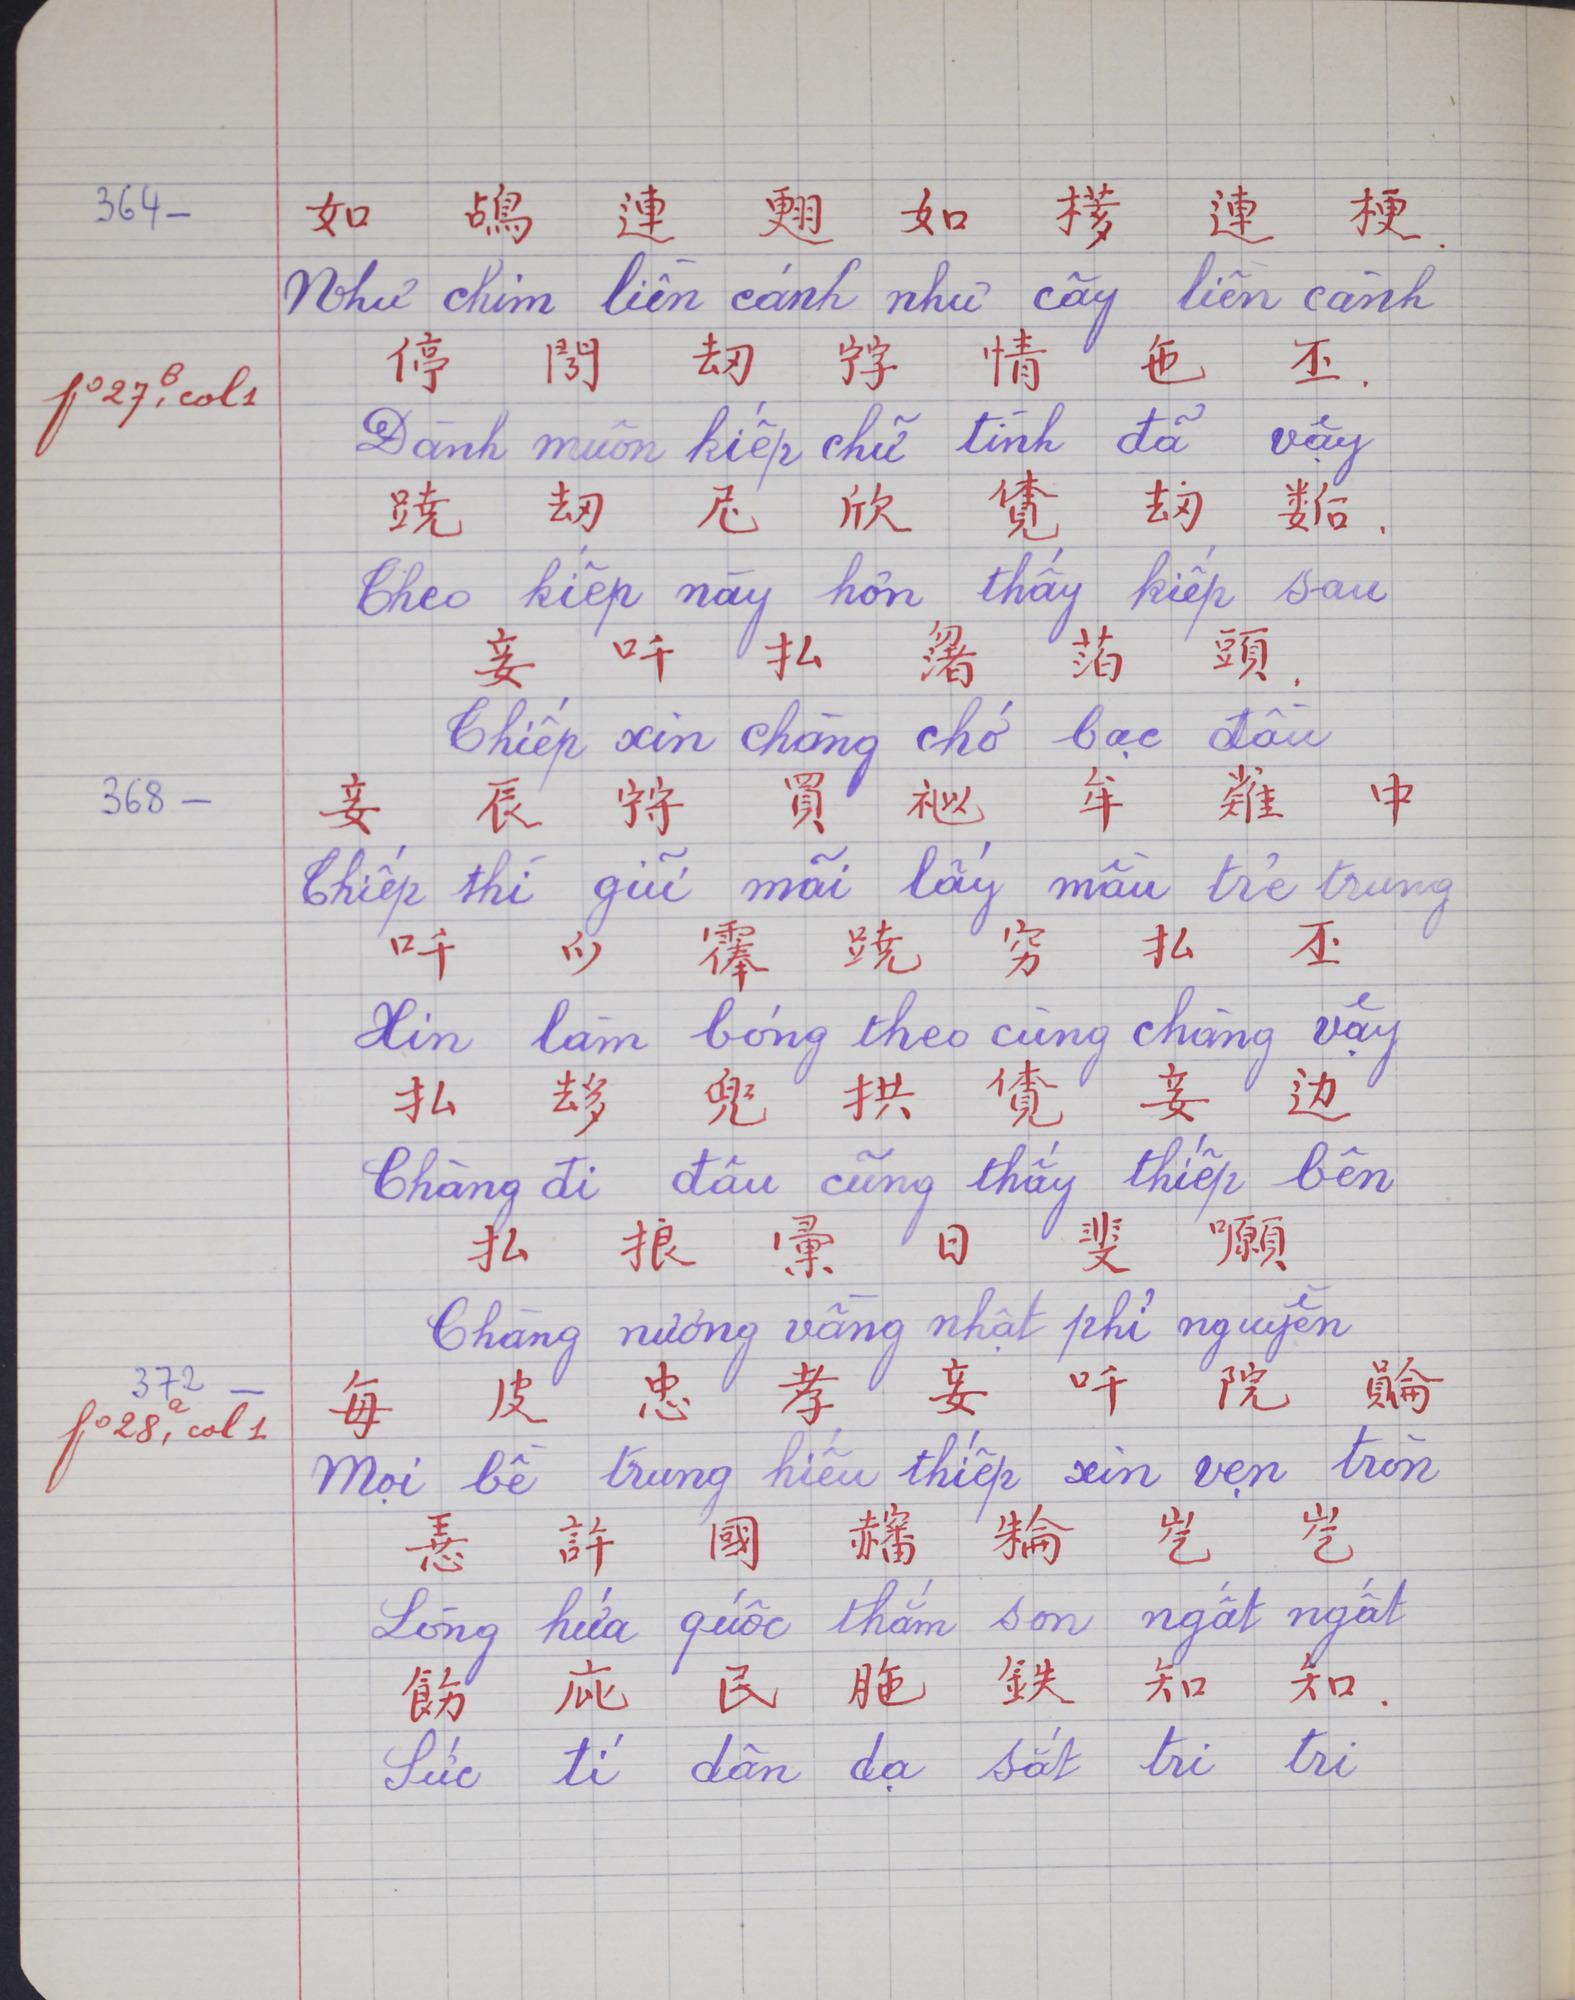 364 –
如 鴣 連 翅 如 𣘃 連 梗.
Như chim liền cánh như cây liền cành
停 閍 刼 𡨸 情 㐌 丕.
fº 27, B col 1
Dành muôn kiếp chữ tình đã vậy
蹺 刼 尼 欣 覓 刼 𡢐.
Theo kiếp này hơn thấy kiếp sau
妾 吀 払 𠤆 萡 頭.
Thiếp xin chàng chớ bạc đầu
368 –
妾 辰 𡨺 買 𥙩 牟 𥘷 中
Thiếp thì giữ mãi lấy mầu trẻ trung
吀 𫜵 䏾 蹺 穷 払 丕
Xin làm bóng theo cùng chàng vậy
払 𠫾 兜 拱 覓 妾 边
Chàng đi đâu cũng thấy thiếp bên
払 㨋 暈 日 斐 願
Chàng nương vầng nhật phỉ nguyền
372 –
fº 28, a col 1
每 皮 忠 孝 妾 吀 院 𧷺
Mọi bề trung hiếu thiếp xin vẹn tròn
𢚸 許 國 𧺀 𣘈 岂 岂
Lòng hứa quốc thắm son ngất ngất
飭 庇 民 胣 鉄 知 知.
Sức tí dân dạ sắt tri tri